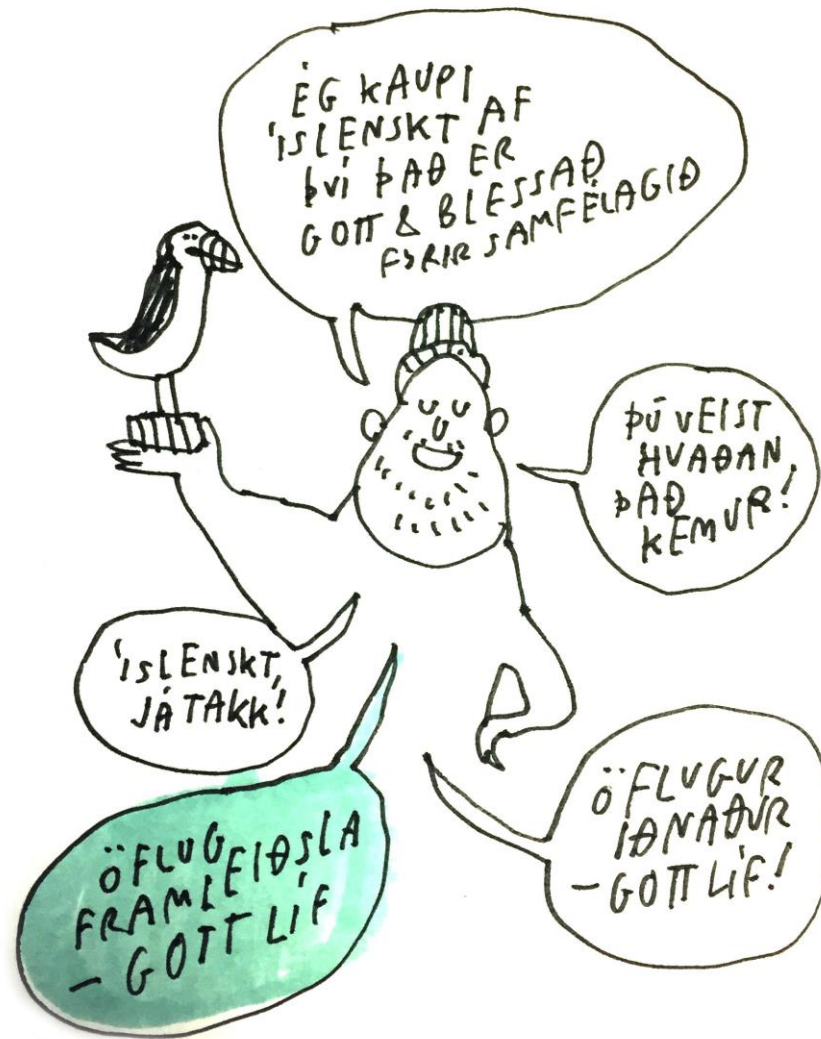 ÉG KAUPI
ÍSLENSKT AF
ÞVÍ ÞAÐ ER
GOTT & BLESSAÐ
FYRIR SAMFÉLAGIÐ
ÞÚ VEIST
HVAÐAN
ÞAÐ
KEMUR!
ÍSLENSKT,
JÁ TAKK!
ÖFLUG
FRAMLEIÐSLA
– GOTT LÍF
ÖFLUGUR
IÐNAÐUR
– GOTT LÍF!